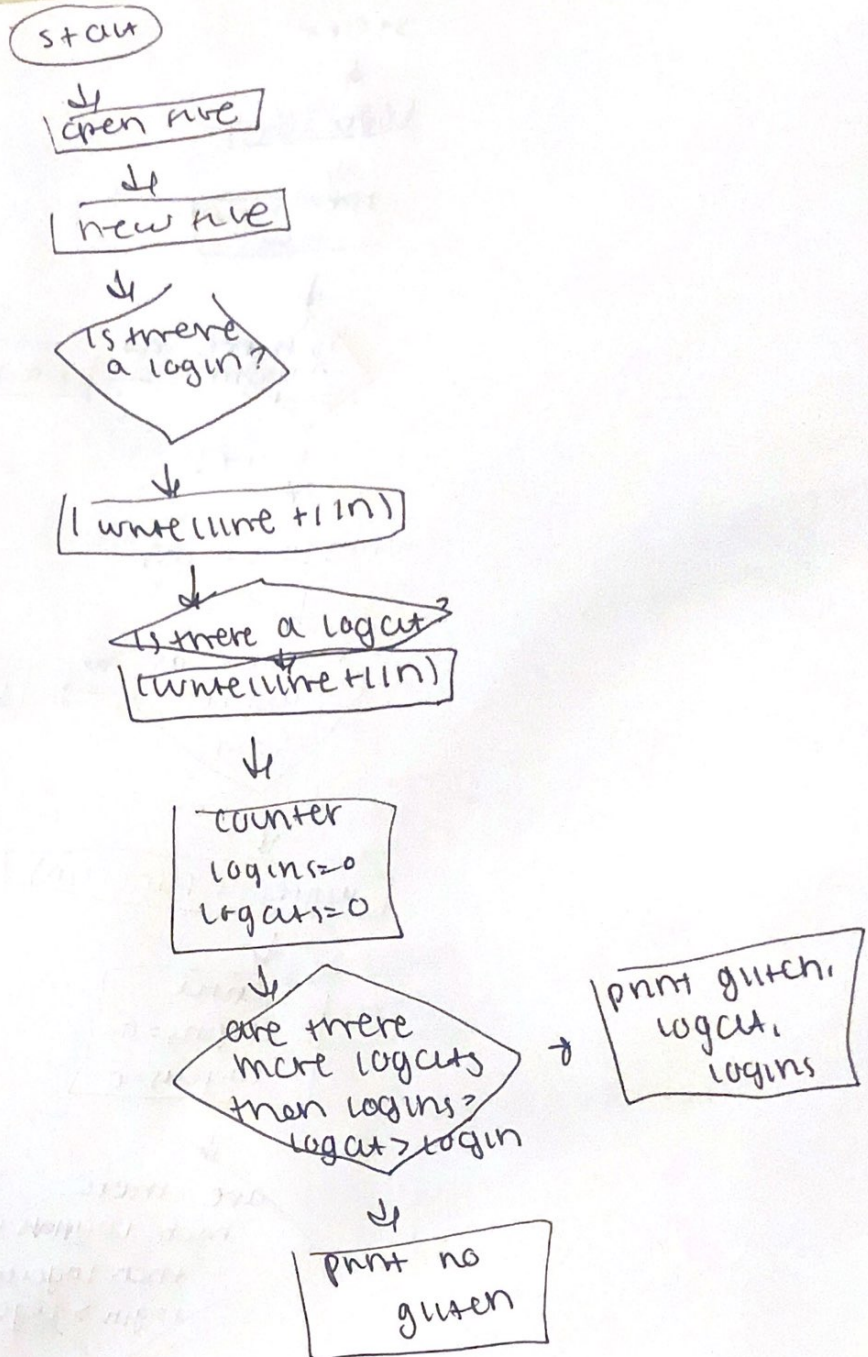 start
open file
new file
Is there
a login?
(write(line + \n)
Is there a logout?
(write(line + \n)
counter
logins=0
logouts=0
are there
more logouts
then logins?
logout > login
print glitch,
logout,
logins
print no
glitch